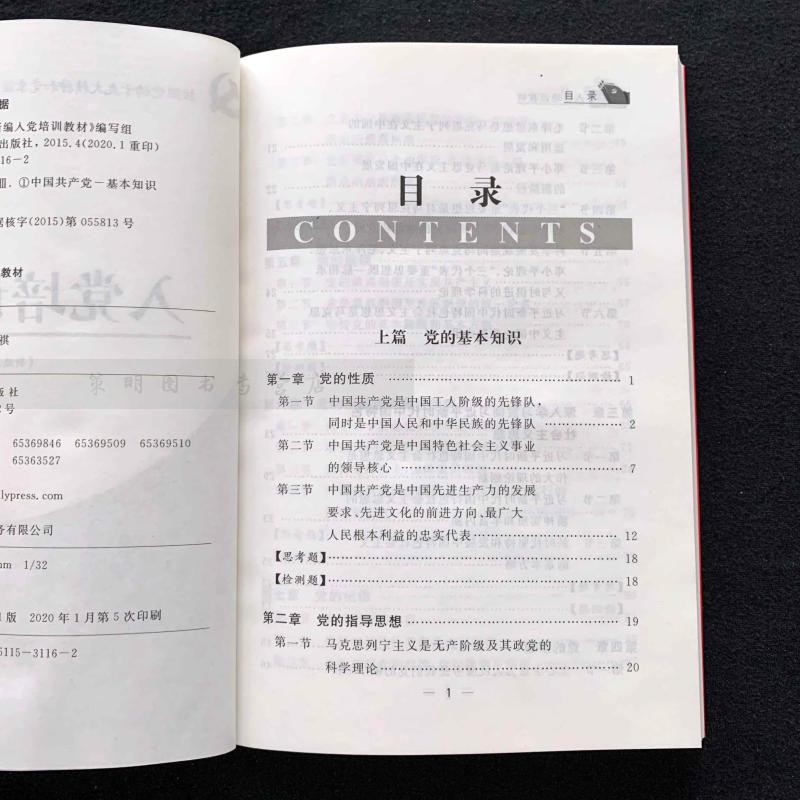 据
新编入党培训教材》编写组
出版社，2015.4(2020.1重印)
16-2
Ⅲ．①中国共产党－基本知识
据核字(2015)第 055813 号
教材
祺
版 社
2号
65369846 65369509 65369510
65363527
lypress.com
务有限公司
mm 1/32
1版 2020年1月第5次印刷
5115-3116-2
策明图书专营店
目 录
目 录
CONTENTS
上篇 党的基本知识
第一章 党的性质 …… 1
第一节 中国共产党是中国工人阶级的先锋队，
同时是中国人民和中华民族的先锋队 …… 2
第二节 中国共产党是中国特色社会主义事业
的领导核心 …… 7
第三节 中国共产党是中国先进生产力的发展
要求、先进文化的前进方向、最广大
人民根本利益的忠实代表 …… 12
【思考题】 …… 18
【检测题】 …… 18
第二章 党的指导思想 …… 19
第一节 马克思列宁主义是无产阶级及其政党的
科学理论 …… 20
— 1 —